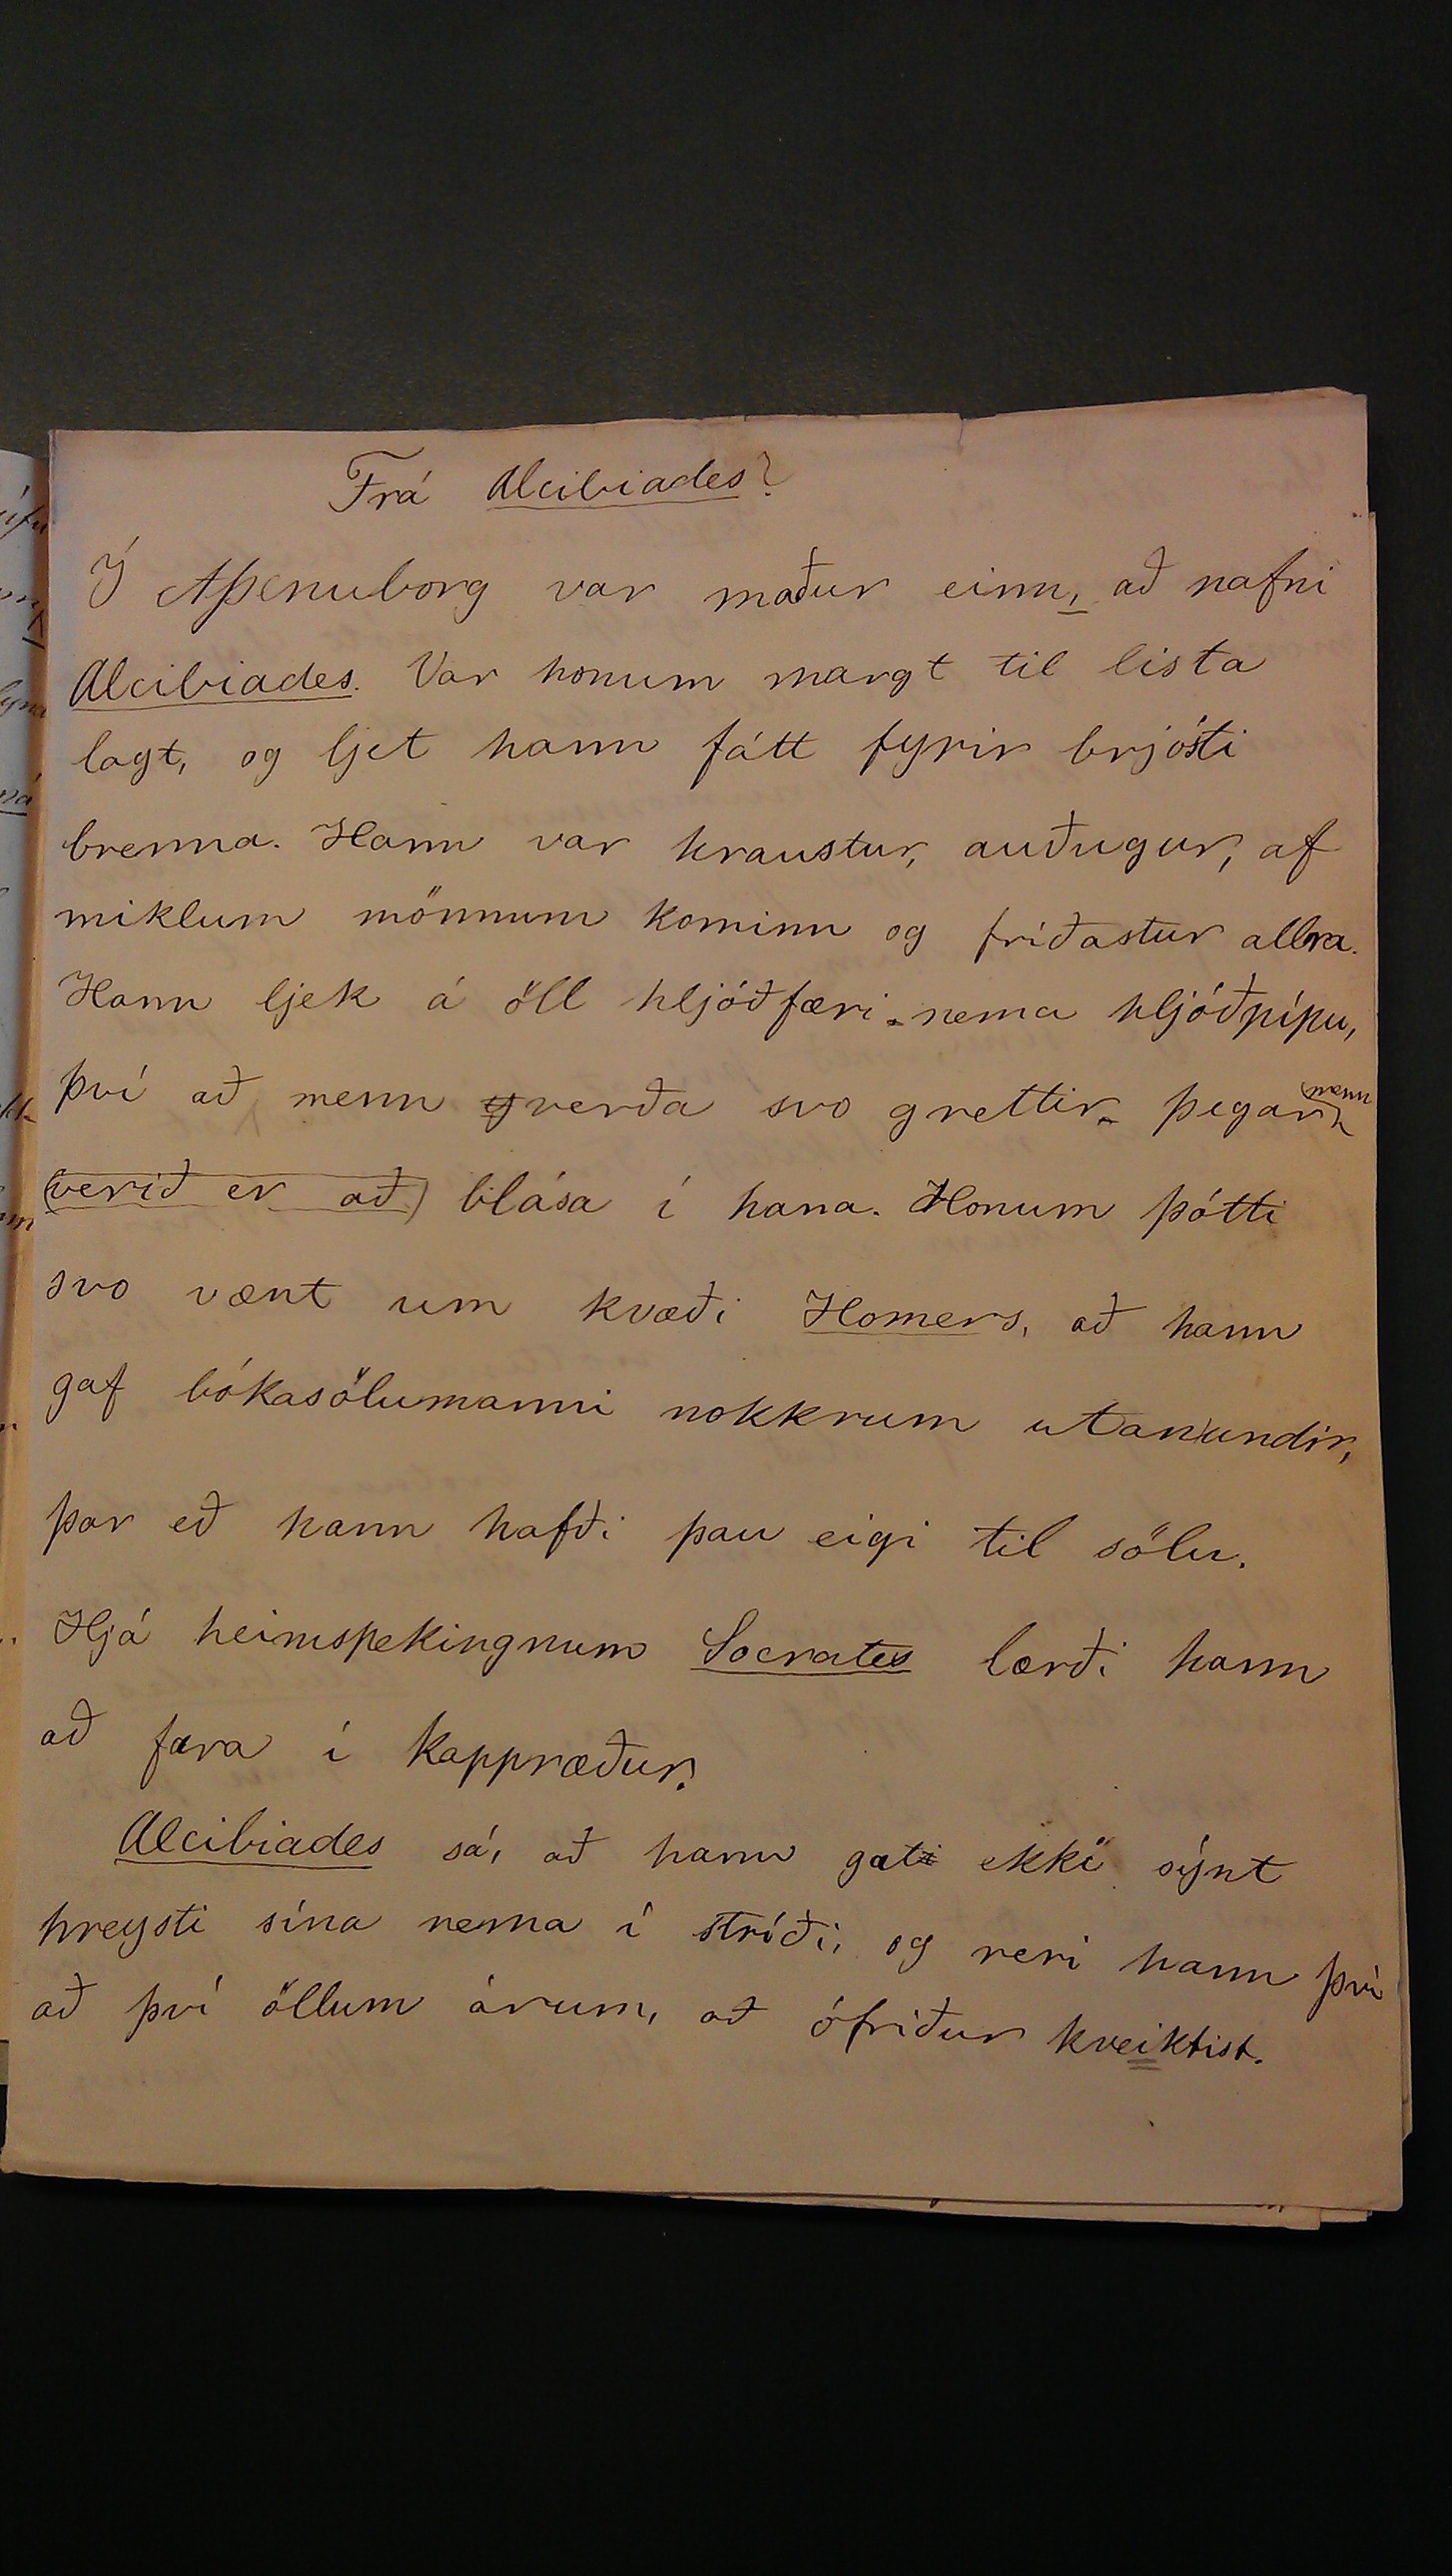 Frá Alcibiades?
Í Aþenuborg var maður einn, að nafni
Alcibiades. Var honum margt til lista
lagt, og ljet hann fátt fyrir brjósti
brenna. Hann var hraustur, auðugur, af
miklum mönnum kominn og fríðastur allra.
Hann ljek á öll hljóðfæri nema hljóðpípu,
því að menn verða svo grettir þegar menn
(verið er að) blása í hana. Honum þótti
svo vænt um kvæði Homers, að hann
gaf bókasölumanni nokkrum utanundir,
þar eð hann hafði þau eigi til sölu.
Hjá heimspekingnum Socrates lærði hann
að fara í kappræður.
Alcibiades sá, að hann gat ekki sýnt
hreysti sína nema í stríði, og reri hann því
að því öllum árum, að ófriður kveiktist.